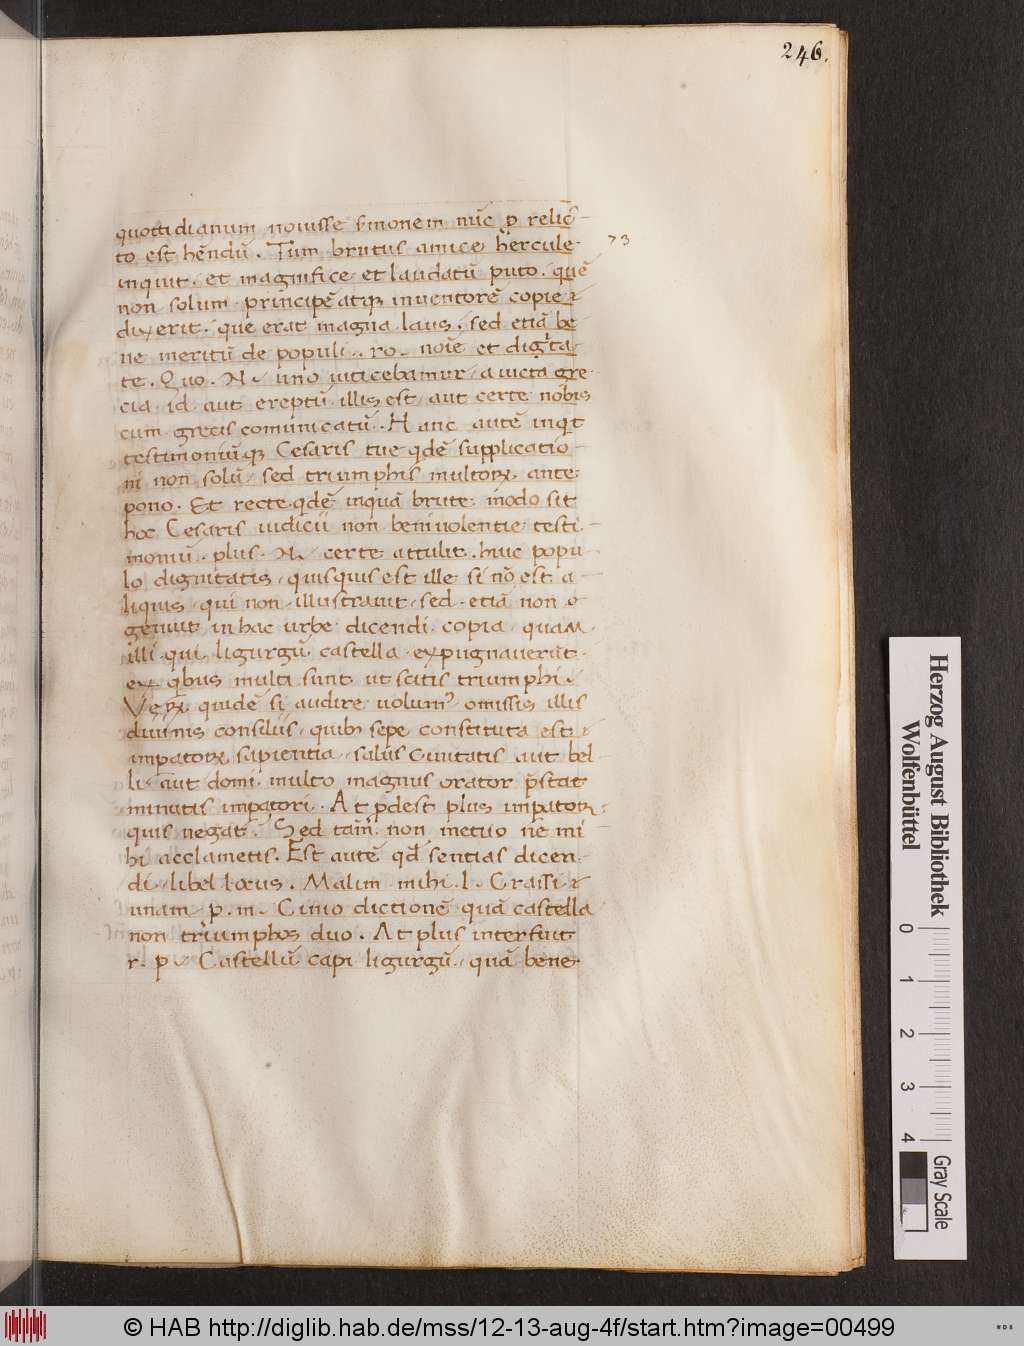 246.
quottidianum novisse s̄monem nūc p̱ relic̄
to est hēndū. Tum brutus amice hercule
73
inquit. et magnifice et laudatū puto. quē
non solum principē atqꝫ inventorē copie
dixerit. que erat magna laus. sed etiā be
ne meritū de populi. ro. noīe et dignita
te. Quo. N. uno vīcebamur a victa gre
cia. id aut ereptū illis est aut certe nobis
cum grecis comunicatū. Hanc autē inqͥt
testimoniūqꝫ Cesaris tue qͥdē supplicatio
ni non solū sed triumphis multoꝝ ante
pono. Et recte qͥdē inquā brute. modo sit
hoc Cesaris iudicii non benivolentie testi
moniū. plus. N. certe attulit. huic popu
lo dignitatis quisquis est ille si nō est a
liquis qui non illustravit. sed etiā non
genuit in hac urbe dicendi copia quam
illi qui ligurgū castella expugnaverūt.
ex qͥbus multi sunt ut scitis triumphi.
Veꝝ quidē si audire volumꝰ omissis illis
divinis consiliis quibꝫ sepe constituta est
impatoꝝ sapientia salus civitatis aut bel
li aut domi. multo magnus orator p̄stat
minutis impatori. At p̱dest plus impatoꝝ
quis negat. Sed tam̄ non metuo ne mi
hi acclametis. Est autē qđ sentias dicen
di liber locus. Malim mihi. l. Crassi
unam p. m. Cūio dictionē quā castella
non triumphos duo. At plus interfuit
r. p. Castellū capi ligurgū quā bene
Herzog August Bibliothek
Wolfenbüttel
0 1 2 3 4
Gray Scale
© HAB http://diglib.hab.de/mss/12-13-aug-4f/start.htm?image=00499